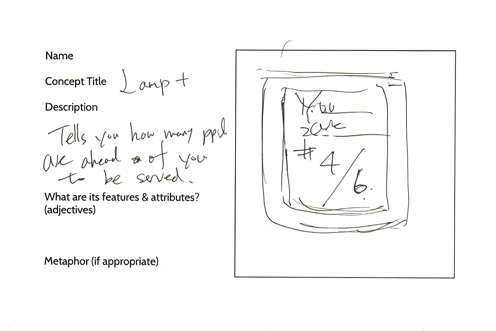 Name
Concept Title Lamp +
Description
Tells you how many ppl
are ahead of you
to be served.
What are its features & attributes?
(adjectives)
Metaphor (if appropriate)
You
are
# 4/6